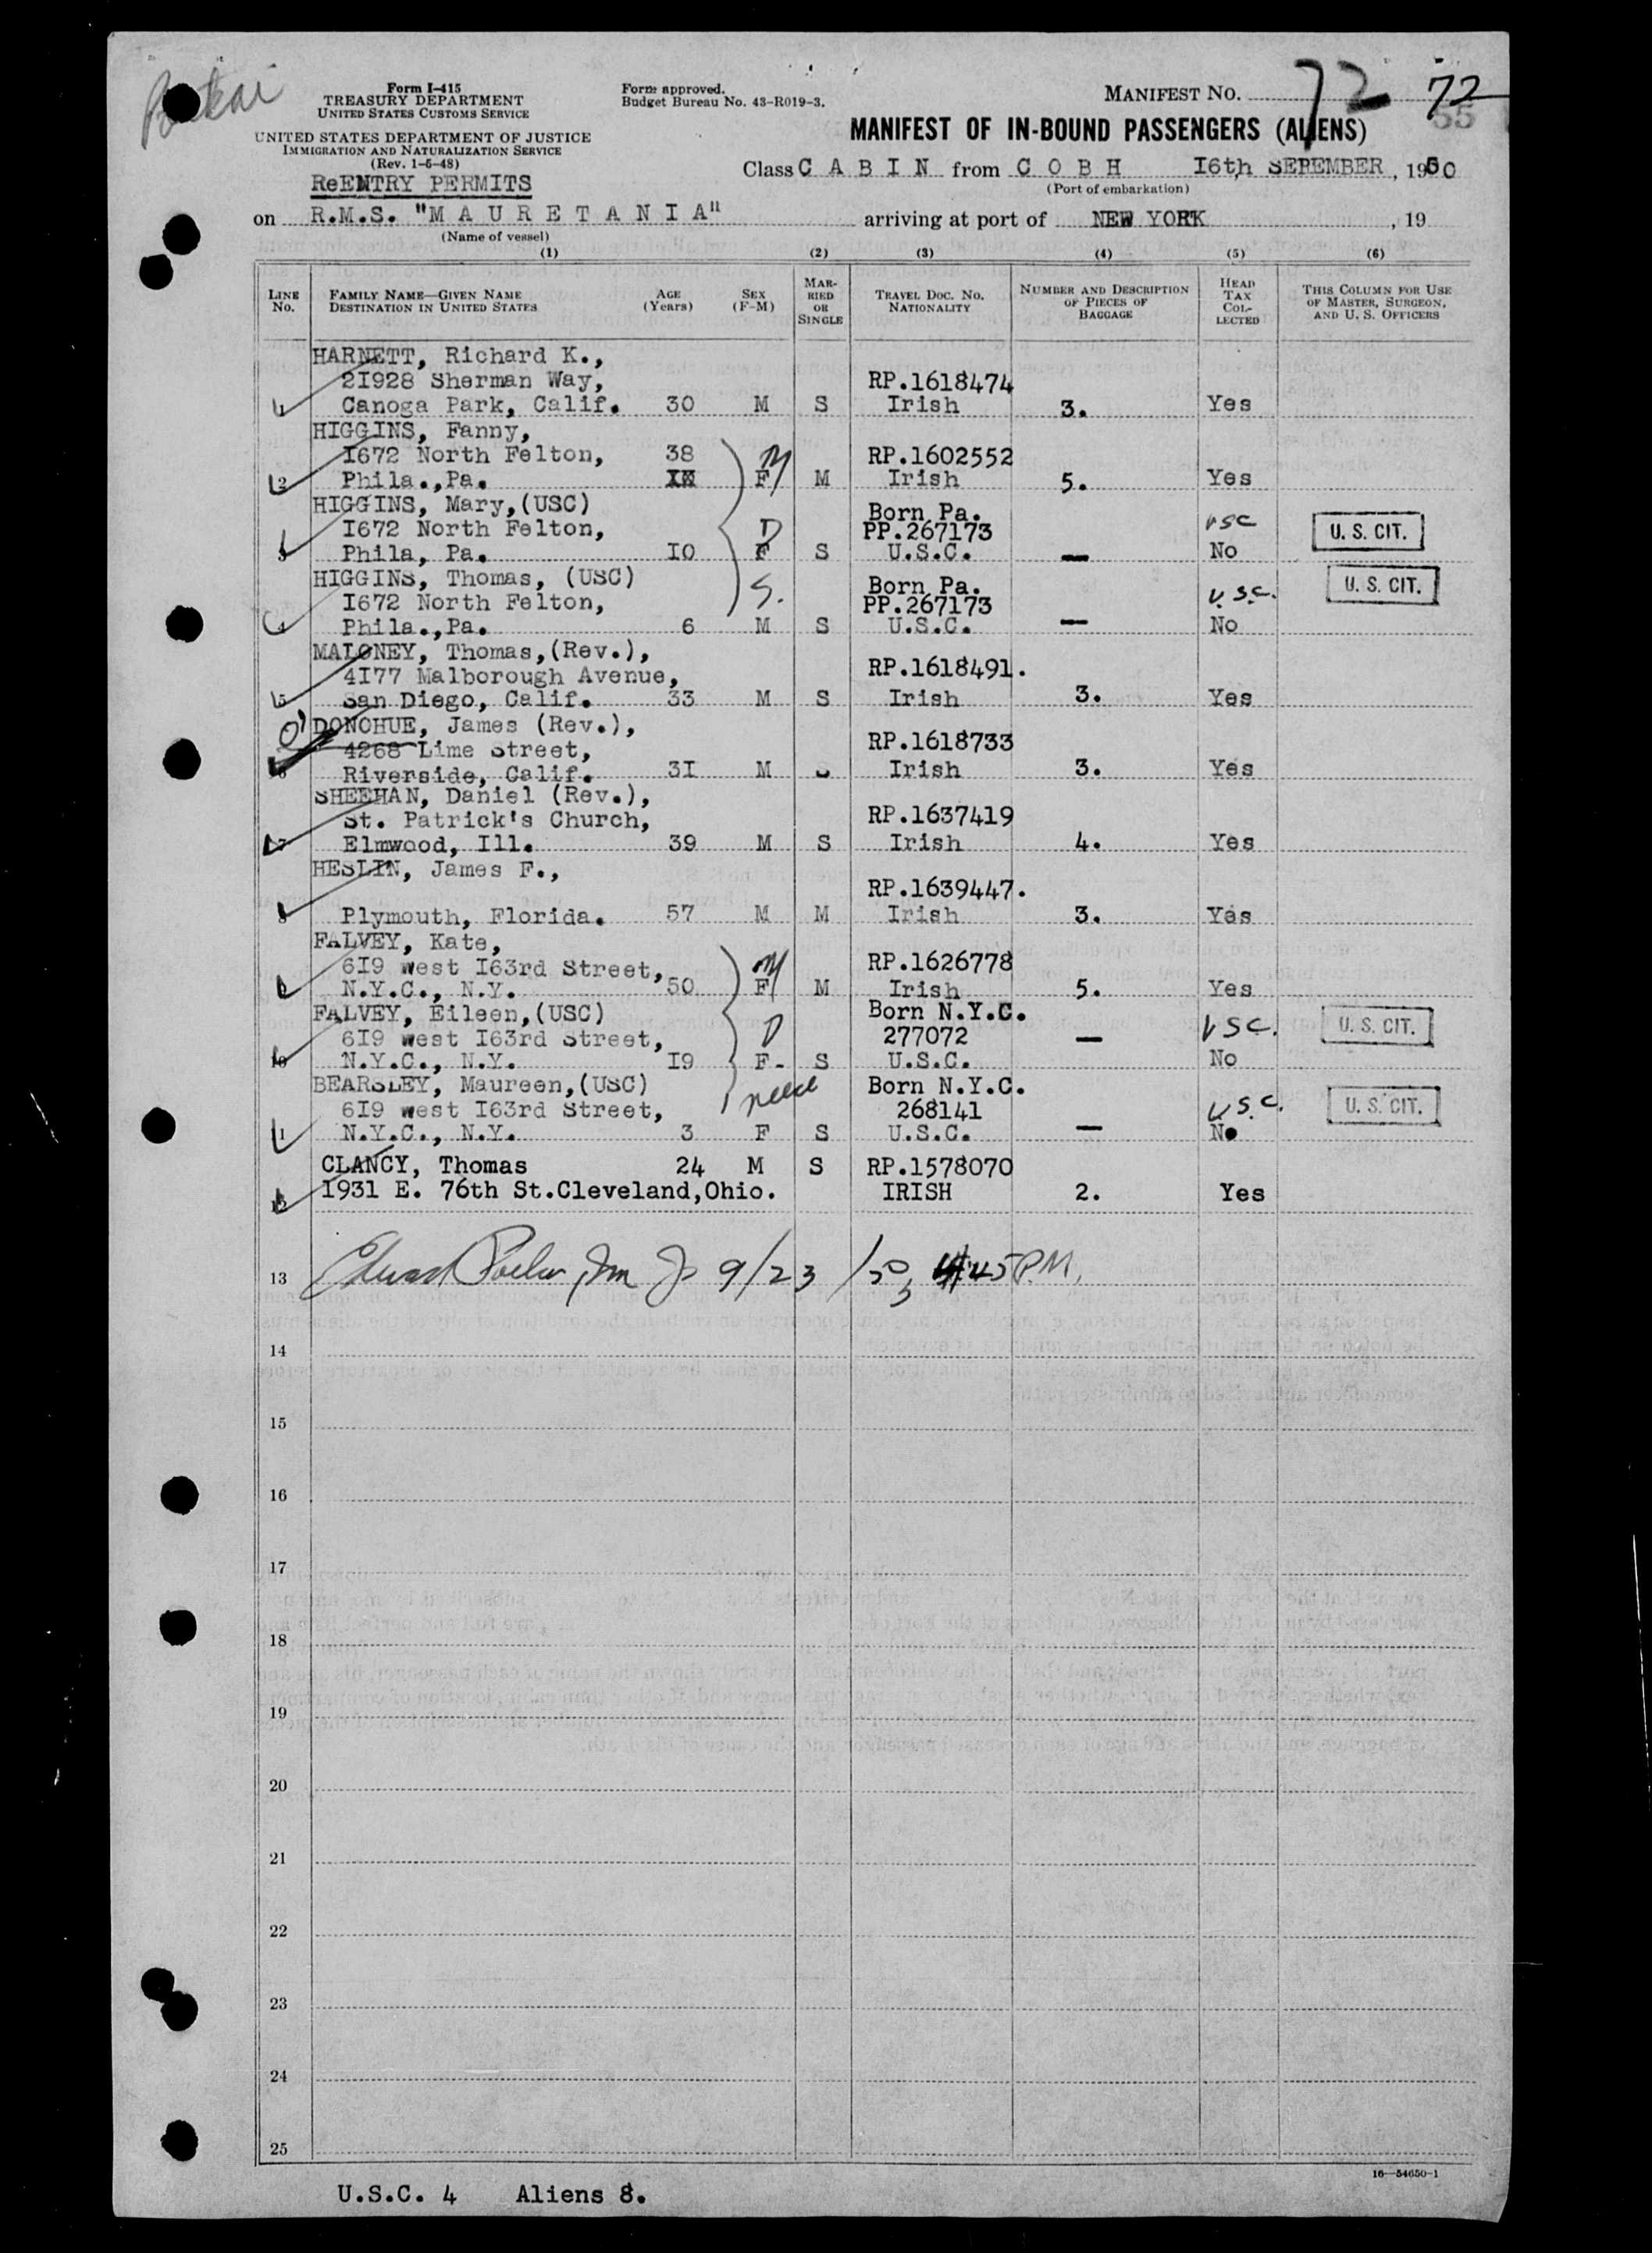 Form I-415
TREASURY DEPARTMENT
UNITED STATES CUSTOMS SERVICE
UNITED STATES DEPARTMENT OF JUSTICE
IMMIGRATION AND NATURALIZATION SERVICE
(Rev. 1-6-48)
Form approved.
Budget Bureau No. 43-R019-3.
MANIFEST NO. 72 72
55
MANIFEST OF IN-BOUND PASSENGERS (ALIENS)
Class C A B I N from C O B H I6th SEPEMBER, 1950
(Port of embarkation)
ReENTRY PERMITS
on R.M.S. "M A U R E T A N I A" arriving at port of NEW YORK, 19
(Name of vessel)
(1) (2) (3) (4) (5) (6)
LINE No. FAMILY NAME—GIVEN NAME DESTINATION IN UNITED STATES AGE (Years) SEX (F-M) MARRIED OR SINGLE TRAVEL DOC. NO. NATIONALITY NUMBER AND DESCRIPTION OF PIECES OF BAGGAGE HEAD TAX COLLECTED THIS COLUMN FOR USE OF MASTER, SURGEON, AND U. S. OFFICERS
HARNETT, Richard K.,
2I928 Sherman Way, RP.1618474
1 Canoga Park, Calif. 30 M S Irish 3. Yes
HIGGINS, Fanny,
I672 North Felton, 38 M RP.1602552
2 Phila.,Pa. F M Irish 5. Yes
HIGGINS, Mary,(USC) Born Pa.
I672 North Felton, D PP.267173 USC U. S. CIT.
3 Phila, Pa. IO F S U.S.C. — No
HIGGINS, Thomas, (USC) S. Born Pa. U. S. CIT.
I672 North Felton, PP.267173 U.S.C.
4 Phila.,Pa. 6 M S U.S.C. — No
MALONEY, Thomas,(Rev.),
4I77 Malborough Avenue, RP.1618491.
5 San Diego, Calif. 33 M S Irish 3. Yes
O'DONOHUE, James (Rev.),
4268 Lime Street, RP.1618733
6 Riverside, Calif. 3I M S Irish 3. Yes
SHEEHAN, Daniel (Rev.),
St. Patrick's Church, RP.1637419
7 Elmwood, Ill. 39 M S Irish 4. Yes
HESLIN, James F.,
RP.1639447.
8 Plymouth, Florida. 57 M M Irish 3. Yes
FALVEY, Kate,
6I9 west I63rd Street, M RP.1626778
9 N.Y.C., N.Y. 50 F M Irish 5. Yes
FALVEY, Eileen,(USC) Born N.Y.C.
6I9 west I63rd Street, D 277072 USC. U. S. CIT.
10 N.Y.C., N.Y. I9 F- S U.S.C. — No
BEARSLEY, Maureen,(USC) niece Born N.Y.C.
6I9 west I63rd Street, 268141 U.S.C. U. S. CIT.
11 N.Y.C., N.Y. 3 F S U.S.C. — No
CLANCY, Thomas 24 M S RP.1578070
12 1931 E. 76th St.Cleveland,Ohio. IRISH 2. Yes
13 9/23/50, 4:45 P.M.
14
15
16
17
18
19
20
21
22
23
24
25
16—54650-1
U.S.C. 4 Aliens 8.